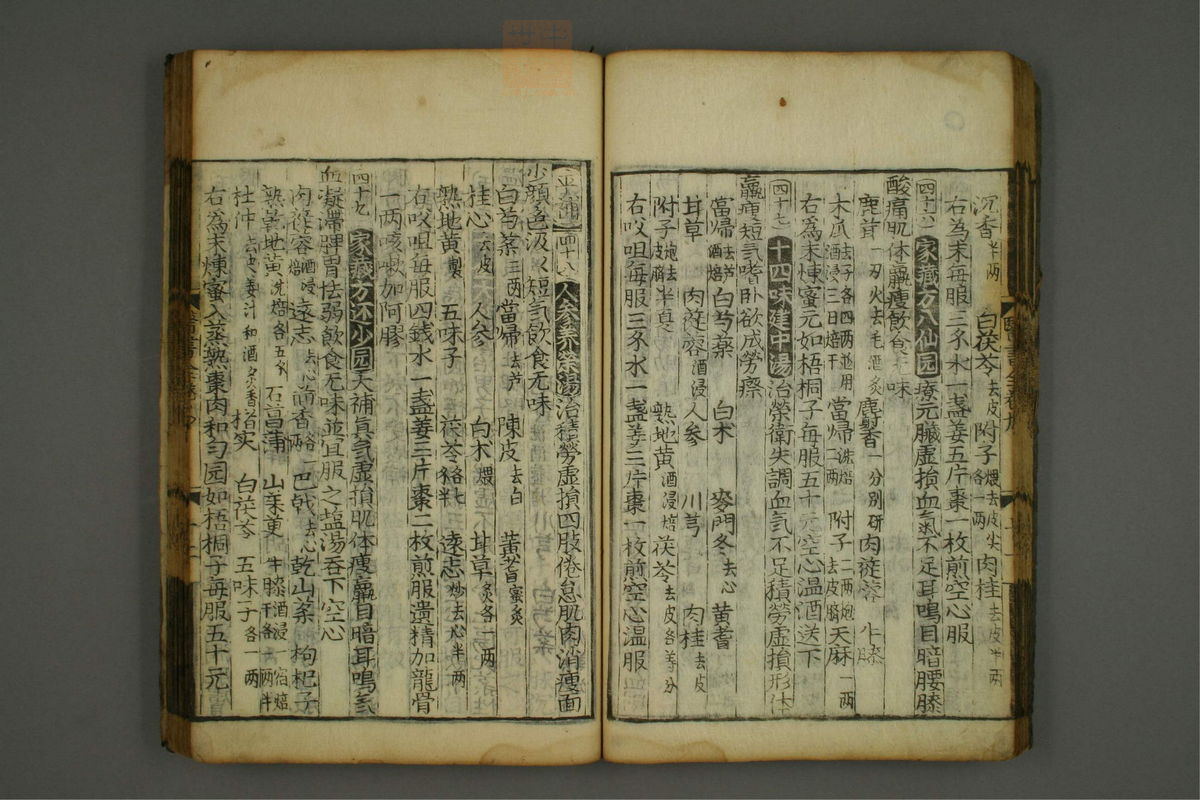 沉香半两 白茯苓去皮 附子煨去皮尖各一两 肉桂去皮半两
右為末每服三不水一盏姜五片棗一枚煎空心服
四十六 家藏方八仙园 療元臓虚損血氣不足耳鳴目暗腰膝
酸痛肌体羸瘦飲食无味
鹿茸一刄火去毛酒炙 麝香一分别研 肉蓯蓉 牛膝
木爪去子各四两並用酒浸三日焙干 當帰洗焙二两 附子二两炮去皮臍 天麻一两
右為末煉蜜元如梧桐子每服五十元空心温酒送下
四十七 十四味建中湯 治榮衛失調血気不足積勞虚損形体
羸瘦短気嗜卧欲成勞瘵
當帰去芦酒焙 白芍薬 白术 麥門冬去心 黄耆
甘草 肉蓯蓉酒浸 人参 川芎 肉桂去皮
附子炮去皮臍 半夏 熟地黄酒浸焙 茯苓去皮各等分
右㕮咀每服三不水一盏姜三片棗一枚煎空心温服
四十八 人参养榮湯 治積勞虚損四肢倦怠肌肉消瘦面
少顔色汲々短気飲食无味
白芍薬三两 當帰去芦 陳皮去白 黄耆蜜炙
桂心去皮 人参 白术煨 甘草炙各一两
熟地黄製 五味子 茯苓各七不半 遠志炒去心半两
右㕮咀每服四銭水一盏姜三片棗二枚煎服遺精加龍骨
一两咳嗽加阿膠
四十九 家藏方还少园 大補真気虚損肌体瘦羸目暗耳鳴気
血凝滞脾胃怯弱飲食无味並宜服之盐湯吞下空心
肉蓯容酒浸焙 遠志去心 茴香 巴戟去心 乾山薬 枸杞子
熟乾地黄洗焙各五不 石菖蒲 山茱萸 牛膝酒浸一宿焙干各一两半
杜仲去皮姜汁和酒炙香 楮实 白茯苓 五味子各一两
右為末煉蜜入蒸熟棗肉和匀园如梧桐子每服五十元